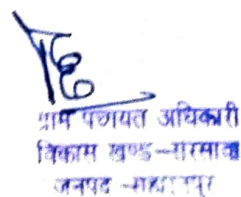 ग्राम पंचायत अधिकारी
विकास खण्ड-सरसावा
जनपद-सहारनपुर